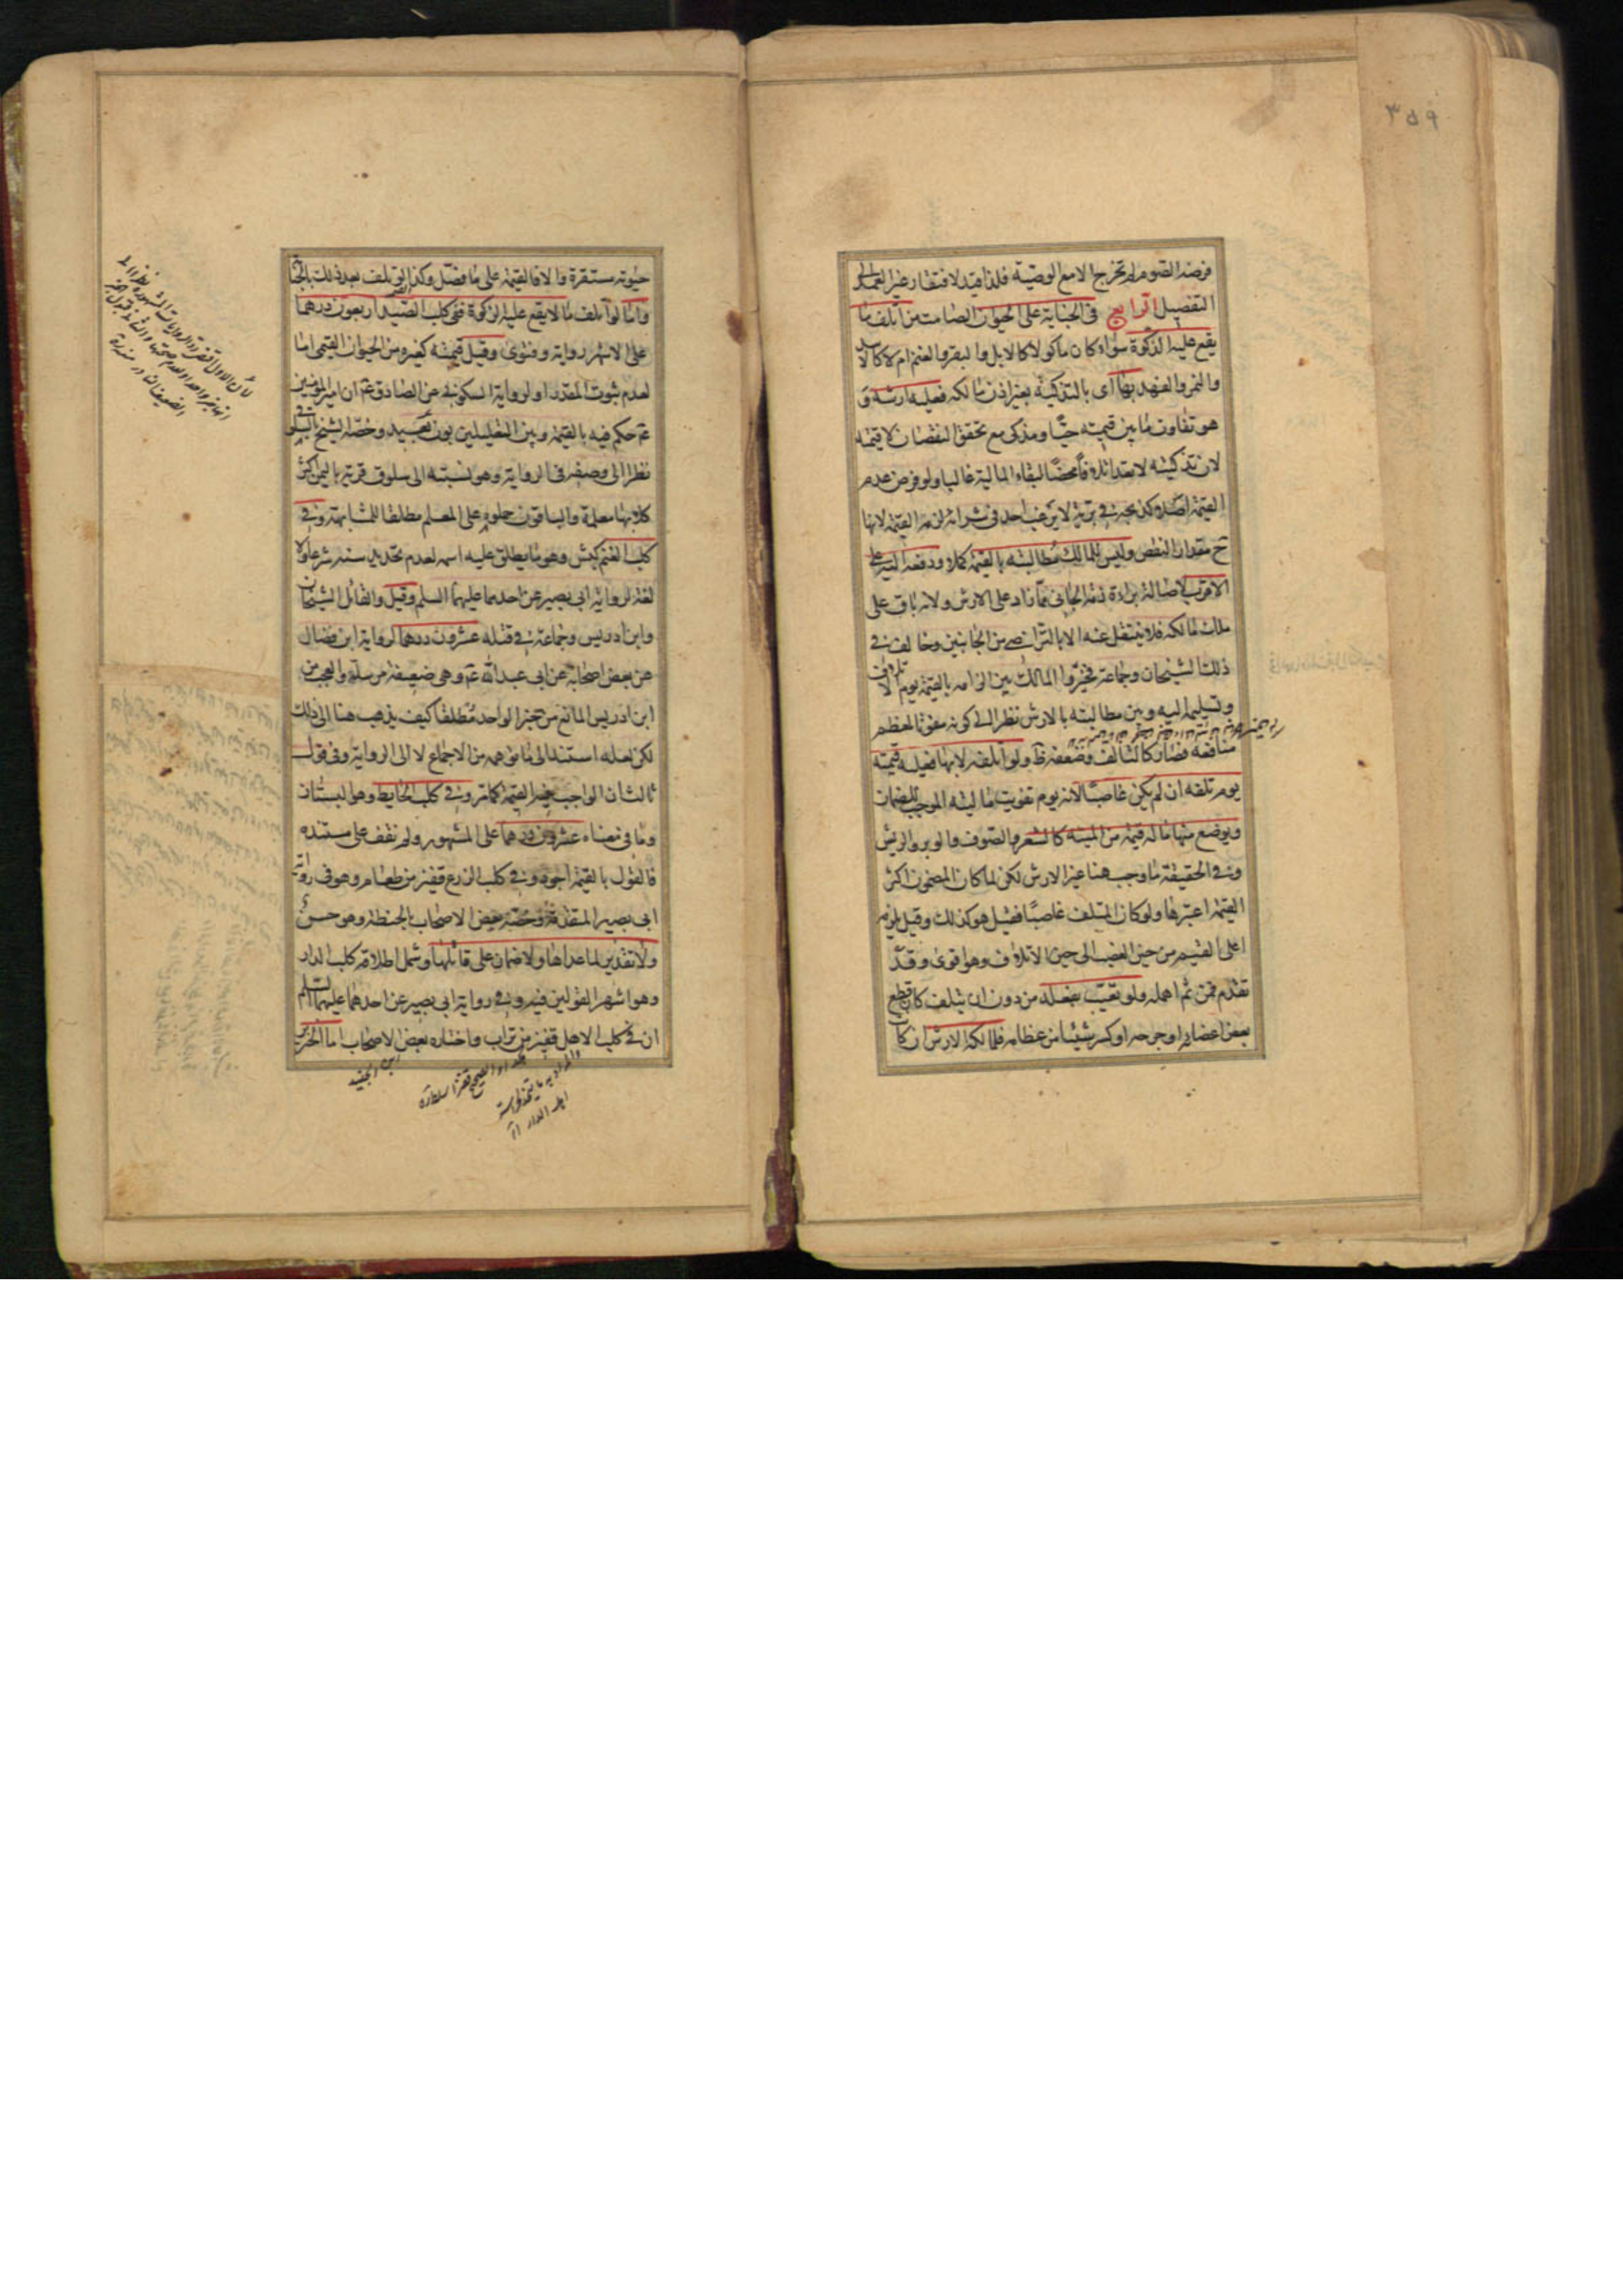 ٣٥٩
فرضه الصوم او تخرج الامع الوصية فلذا قيد لافتقار غير العمد الى
التفصيل الرابع فى الجناية على الحيوان الصامت من اتلف ما
يقع عليه الذكوة سواء كان ماكولا كالابل والبقر والغنم ام لا كالاسد
والنمر والفهد بها اى بالتذكية بغير اذن مالكه فعليه ارشه و
هو تفاوت ما بين قيمته حيا ومذكى مع تحقق النقصان لا قيمته
لان تذكيته لا تعد اتلافا محضا لبقاء المالية غالبا ولو فرض عدم
القيمة اصلا كذبحه فى برية لا يرغب احد فى شرائه لزمه القيمة لانها
ح مقدار النقص وليس للمالك مطالبته بالقيمة كملا ودفعه اليه على
الاقرب لاصالة براءة ذمة الجانى مما زاد على الارش ولانه باق على
ملك مالكه فلا ينتقل عنه الا بالتراضى من الجانبين وخالف فى
ذلك الشيخان وجماعة فخيروا المالك بين الزامه بالقيمة يوم الاتلاف
وتسليمه اليه وبين مطالبته بالارش نظرا الى كونه مفوتا لمعظم
منافعه فصار كالتالف وضعفه ظ ولو اتلفه لا بها فعليه قيمته
يوم تلفه ان لم يكن غاصبا لانه يوم تفويت ماليته الموجب للضمان
ويوضع منها ما له قيمة من الميتة كالشعر والصوف والوبر والريش
وفى الحقيقة ما وجب هنا غير الارش لكن لما كان المضمون اكثر
القيمة اعتبرها ولو كان المتلف غاصبا فقيل هو كذلك وقيل يلزمه
اعلى القيم من حين الغصب الى حين الاتلاف وهو اقوى وقد
تقدم فمن ثم اهمله ولو تعيب بفعله من دون ان يتلف كان قطع
بعض اعضائه او جرحه او كسر شيئا من عظامه فلمالكه الارش ان كان
حيوته مستقرة والا فالقيمة على ما فصل وكذا لو تلف بعد ذلك بالجناية
واما لو اتلف ما لا يقع عليه الذكوة ففى كلب الصيد اربعون درهما
على الاشهر رواية وفتوى وقيل قيمته كغيره من الحيوان القيمى اما
لعدم ثبوت المقدر او لرواية السكونى عن الصادق ع ان امير المؤمنين
ع حكم فيه بالقيمة وبين التعليلين بون بعيد وخصه الشيخ بالسلوقى
نظرا الى وصفه فى الرواية وهو نسبته الى سلوق قرية باليمن اكثر
كلابها معلمة والباقون حملوه على المعلم مطلقا للمشابهة وفى
كلب الغنم كبش وهو ما يطلق عليه اسمه لعدم تحديد سنه شرعا ولا
لغة لرواية ابى بصير عن احدهما عليهما السلم وقيل والقائل الشيخان
وابن ادريس وجماعة فى قتله عشرون درهما لرواية ابن فضال
عن بعض اصحابه عن ابى عبد الله ع وهى ضعيفة مرسلة والعجب من
ابن ادريس المانع من خبر الواحد مطلقا كيف يذهب هنا الى ذلك
لكن لعله استند الى ما توهمه من الاجماع لا الى الرواية وفى قول
ثالث ان الواجب فيه القيمة كما تر وفى كلب الحايط وهو البستان
وما فى معناه عشرون درهما على المشهور ولم نقف على مستنده
فالقول بالقيمة اجود وفى كلب الزرع قفيز من طعام وهو فى رواية
ابى بصير المتقدمة وخصه بعض الاصحاب بالحنطة وهو حسن
ولا تقدير لما عداها ولا ضمان على قاتلها وشمل اطلاقه كلب الدار
وهو اشهر القولين فيه وفى رواية ابى بصير عن احدهما عليهما السلم
ان فى كلب الاهل قفيز من تراب واختاره بعض الاصحاب اما الخنزير
ابن الجنيد
اهل الدار